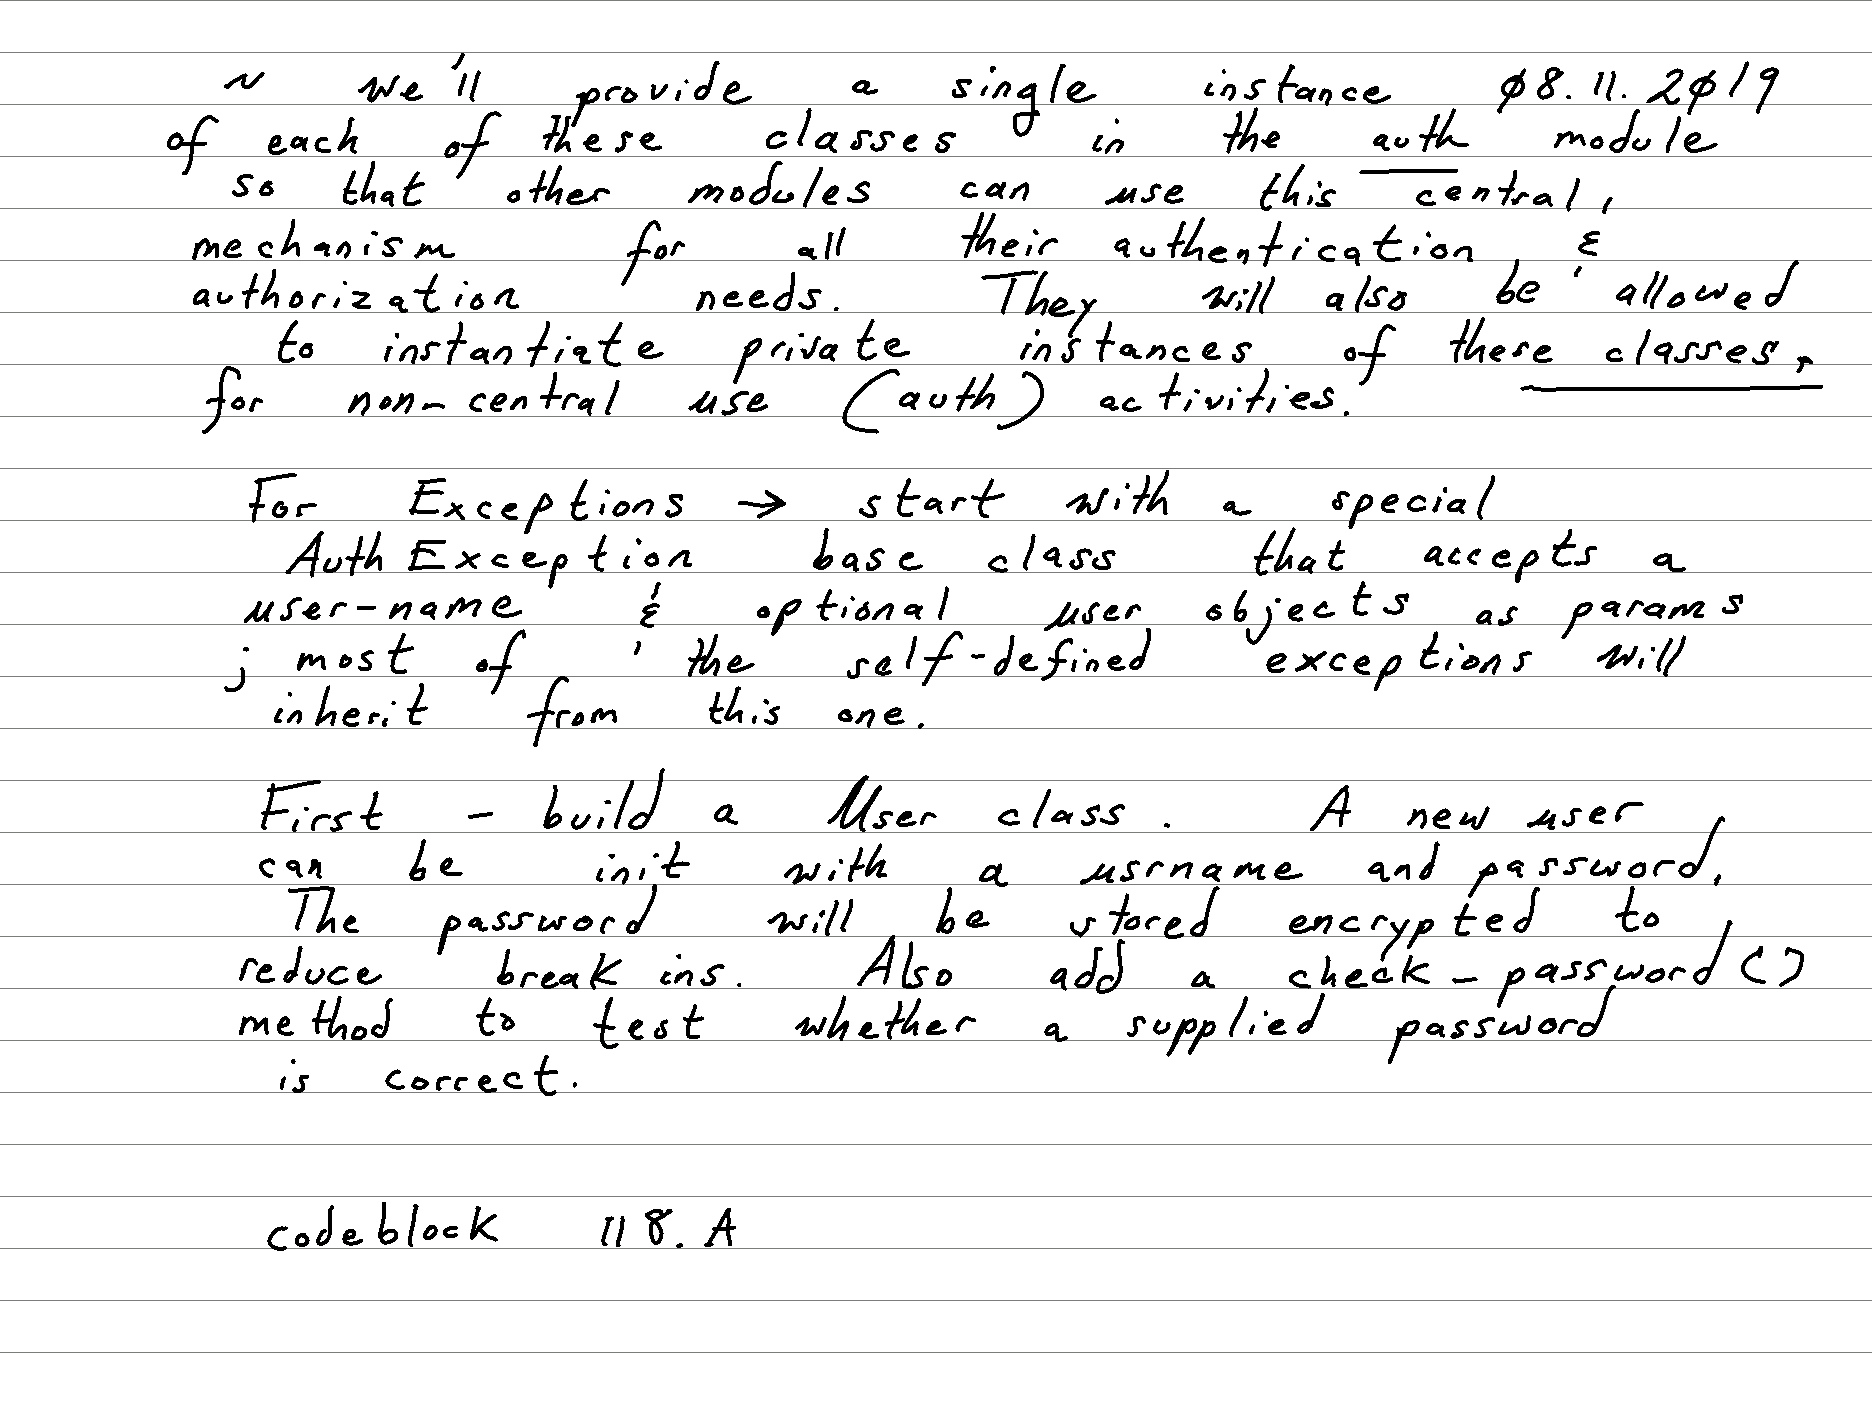 ~ we'll provide a single instance Ø8.11.2Ø19
of each of these classes in the auth module
so that other modules can use this central,
mechanism for all their authentication &
authorization needs. They will also be allowed
to instantiate private instances of these classes,
for non-central use (auth) activities.
For Exceptions → start with a special
AuthException base class that accepts a
user-name & optional user objects as params
; most of the self-defined exceptions will
inherit from this one.
First - build a User class. A new user
can be init with a usrname and password.
The password will be stored encrypted to
reduce break ins. Also add a check_password()
method to test whether a supplied password
is correct.
codeblock 118.A